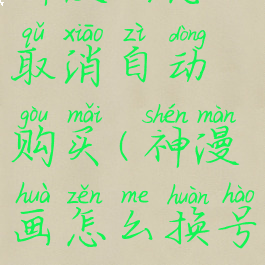 qǔ xiāo zì dòng
取消自动
gòu mǎi shén màn
购买(神漫
huà zěn me huàn hào
画怎么换号